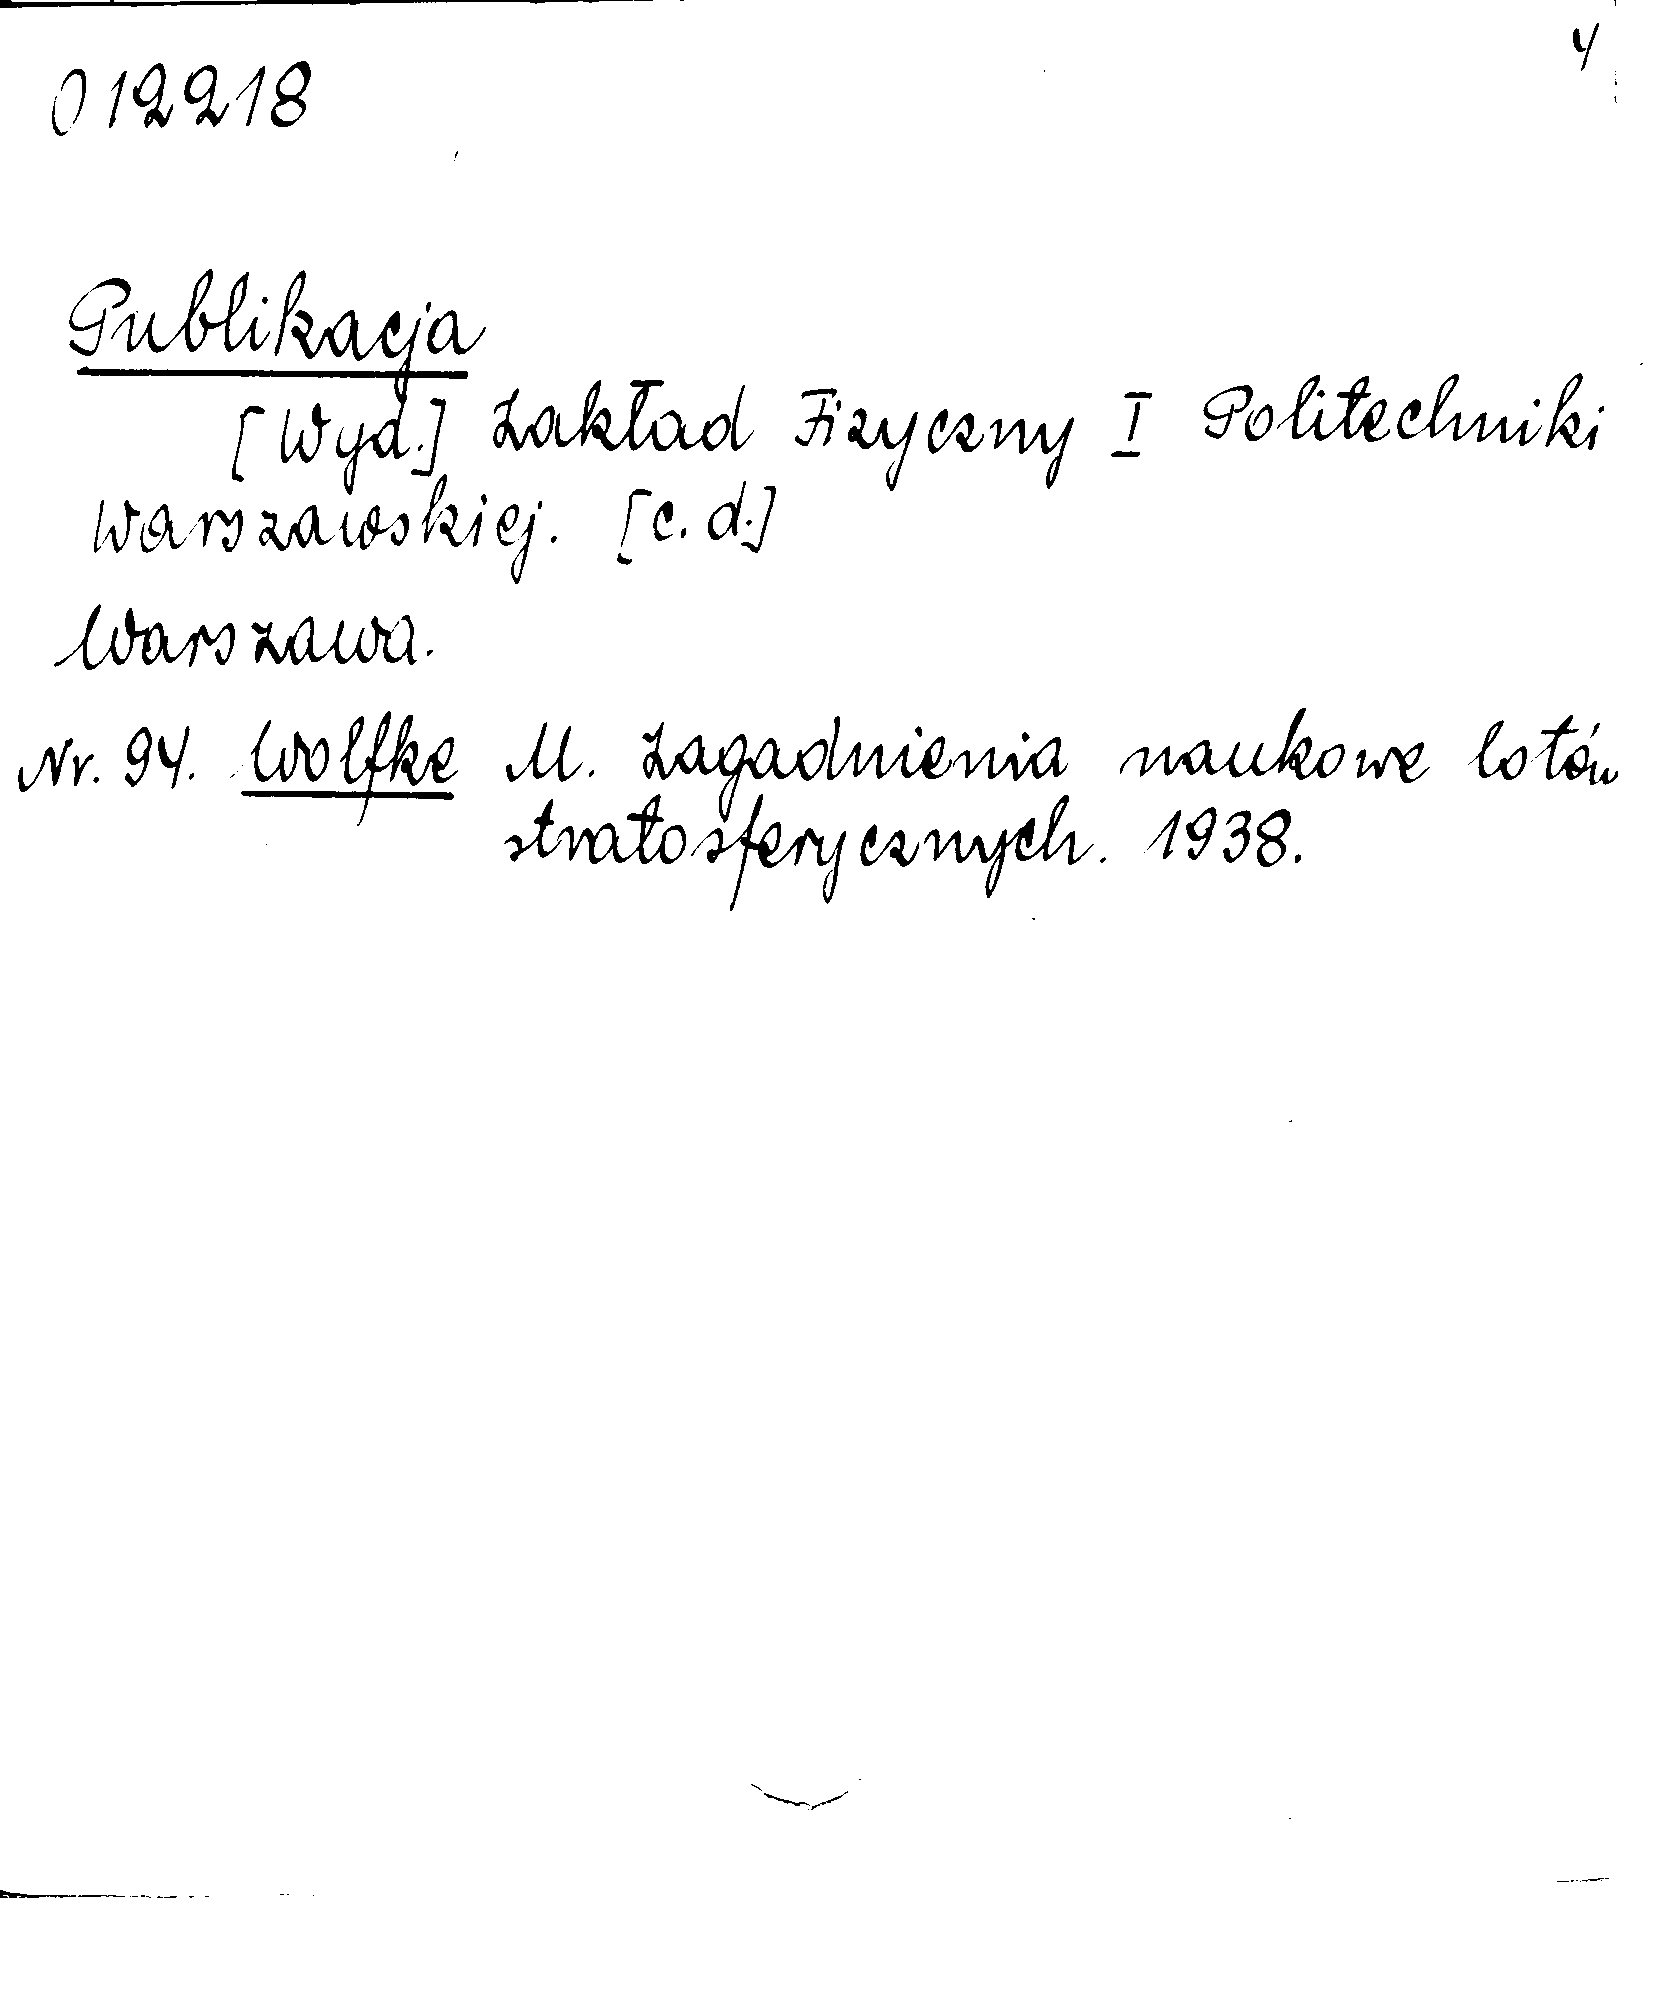 4
012218
Publikacja
[Wyd.] Zakład Fizyczny I Politechniki
Warszawskiej. [c.d.]
Warszawa.
Nr. 94. Wolfke M. Zagadnienia naukowe lotów
stratosferycznych. 1938.